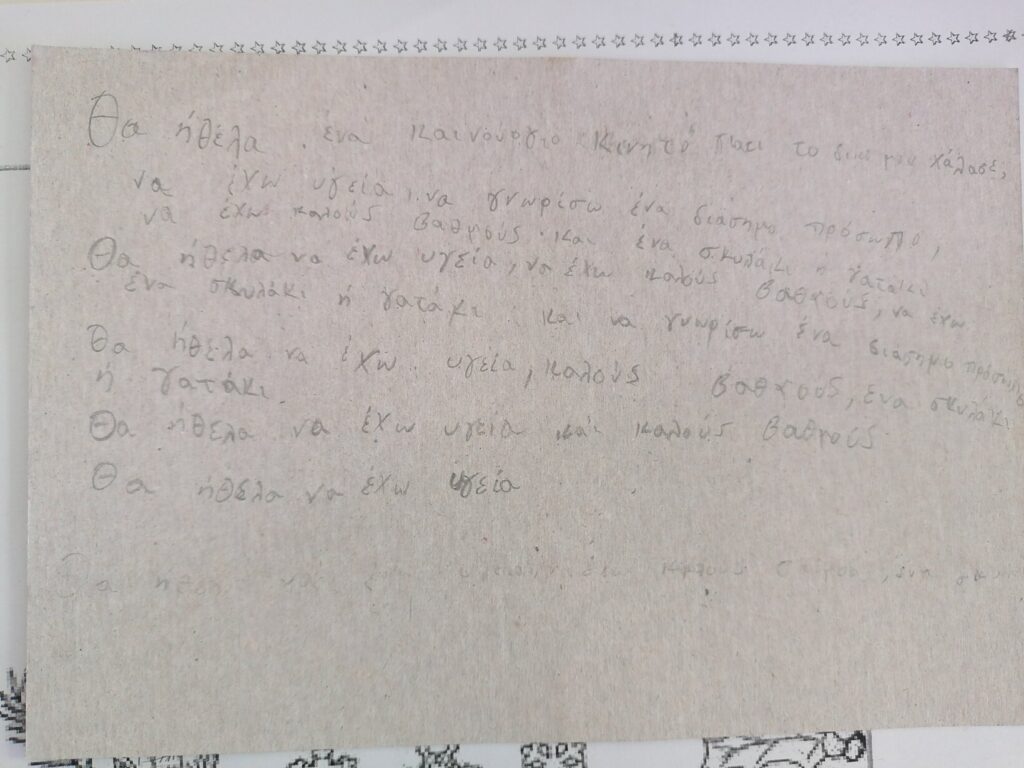 Θα ήθελα ένα καινούργιο κινητό γιατί το δικό μου χάλασε,
να έχω υγεία, να γνωρίσω ένα διάσημο πρόσωπο,
να έχω καλούς βαθμούς και ένα σκυλάκι ή γατάκι
Θα ήθελα να έχω υγεία, να έχω καλούς βαθμούς, να έχω
ένα σκυλάκι ή γατάκι και να γνωρίσω ένα διάσημο πρόσωπο
Θα ήθελα να έχω υγεία, καλούς βαθμούς, ένα σκυλάκι
ή γατάκι
Θα ήθελα να έχω υγεία και καλούς βαθμούς
Θα ήθελα να έχω υγεία